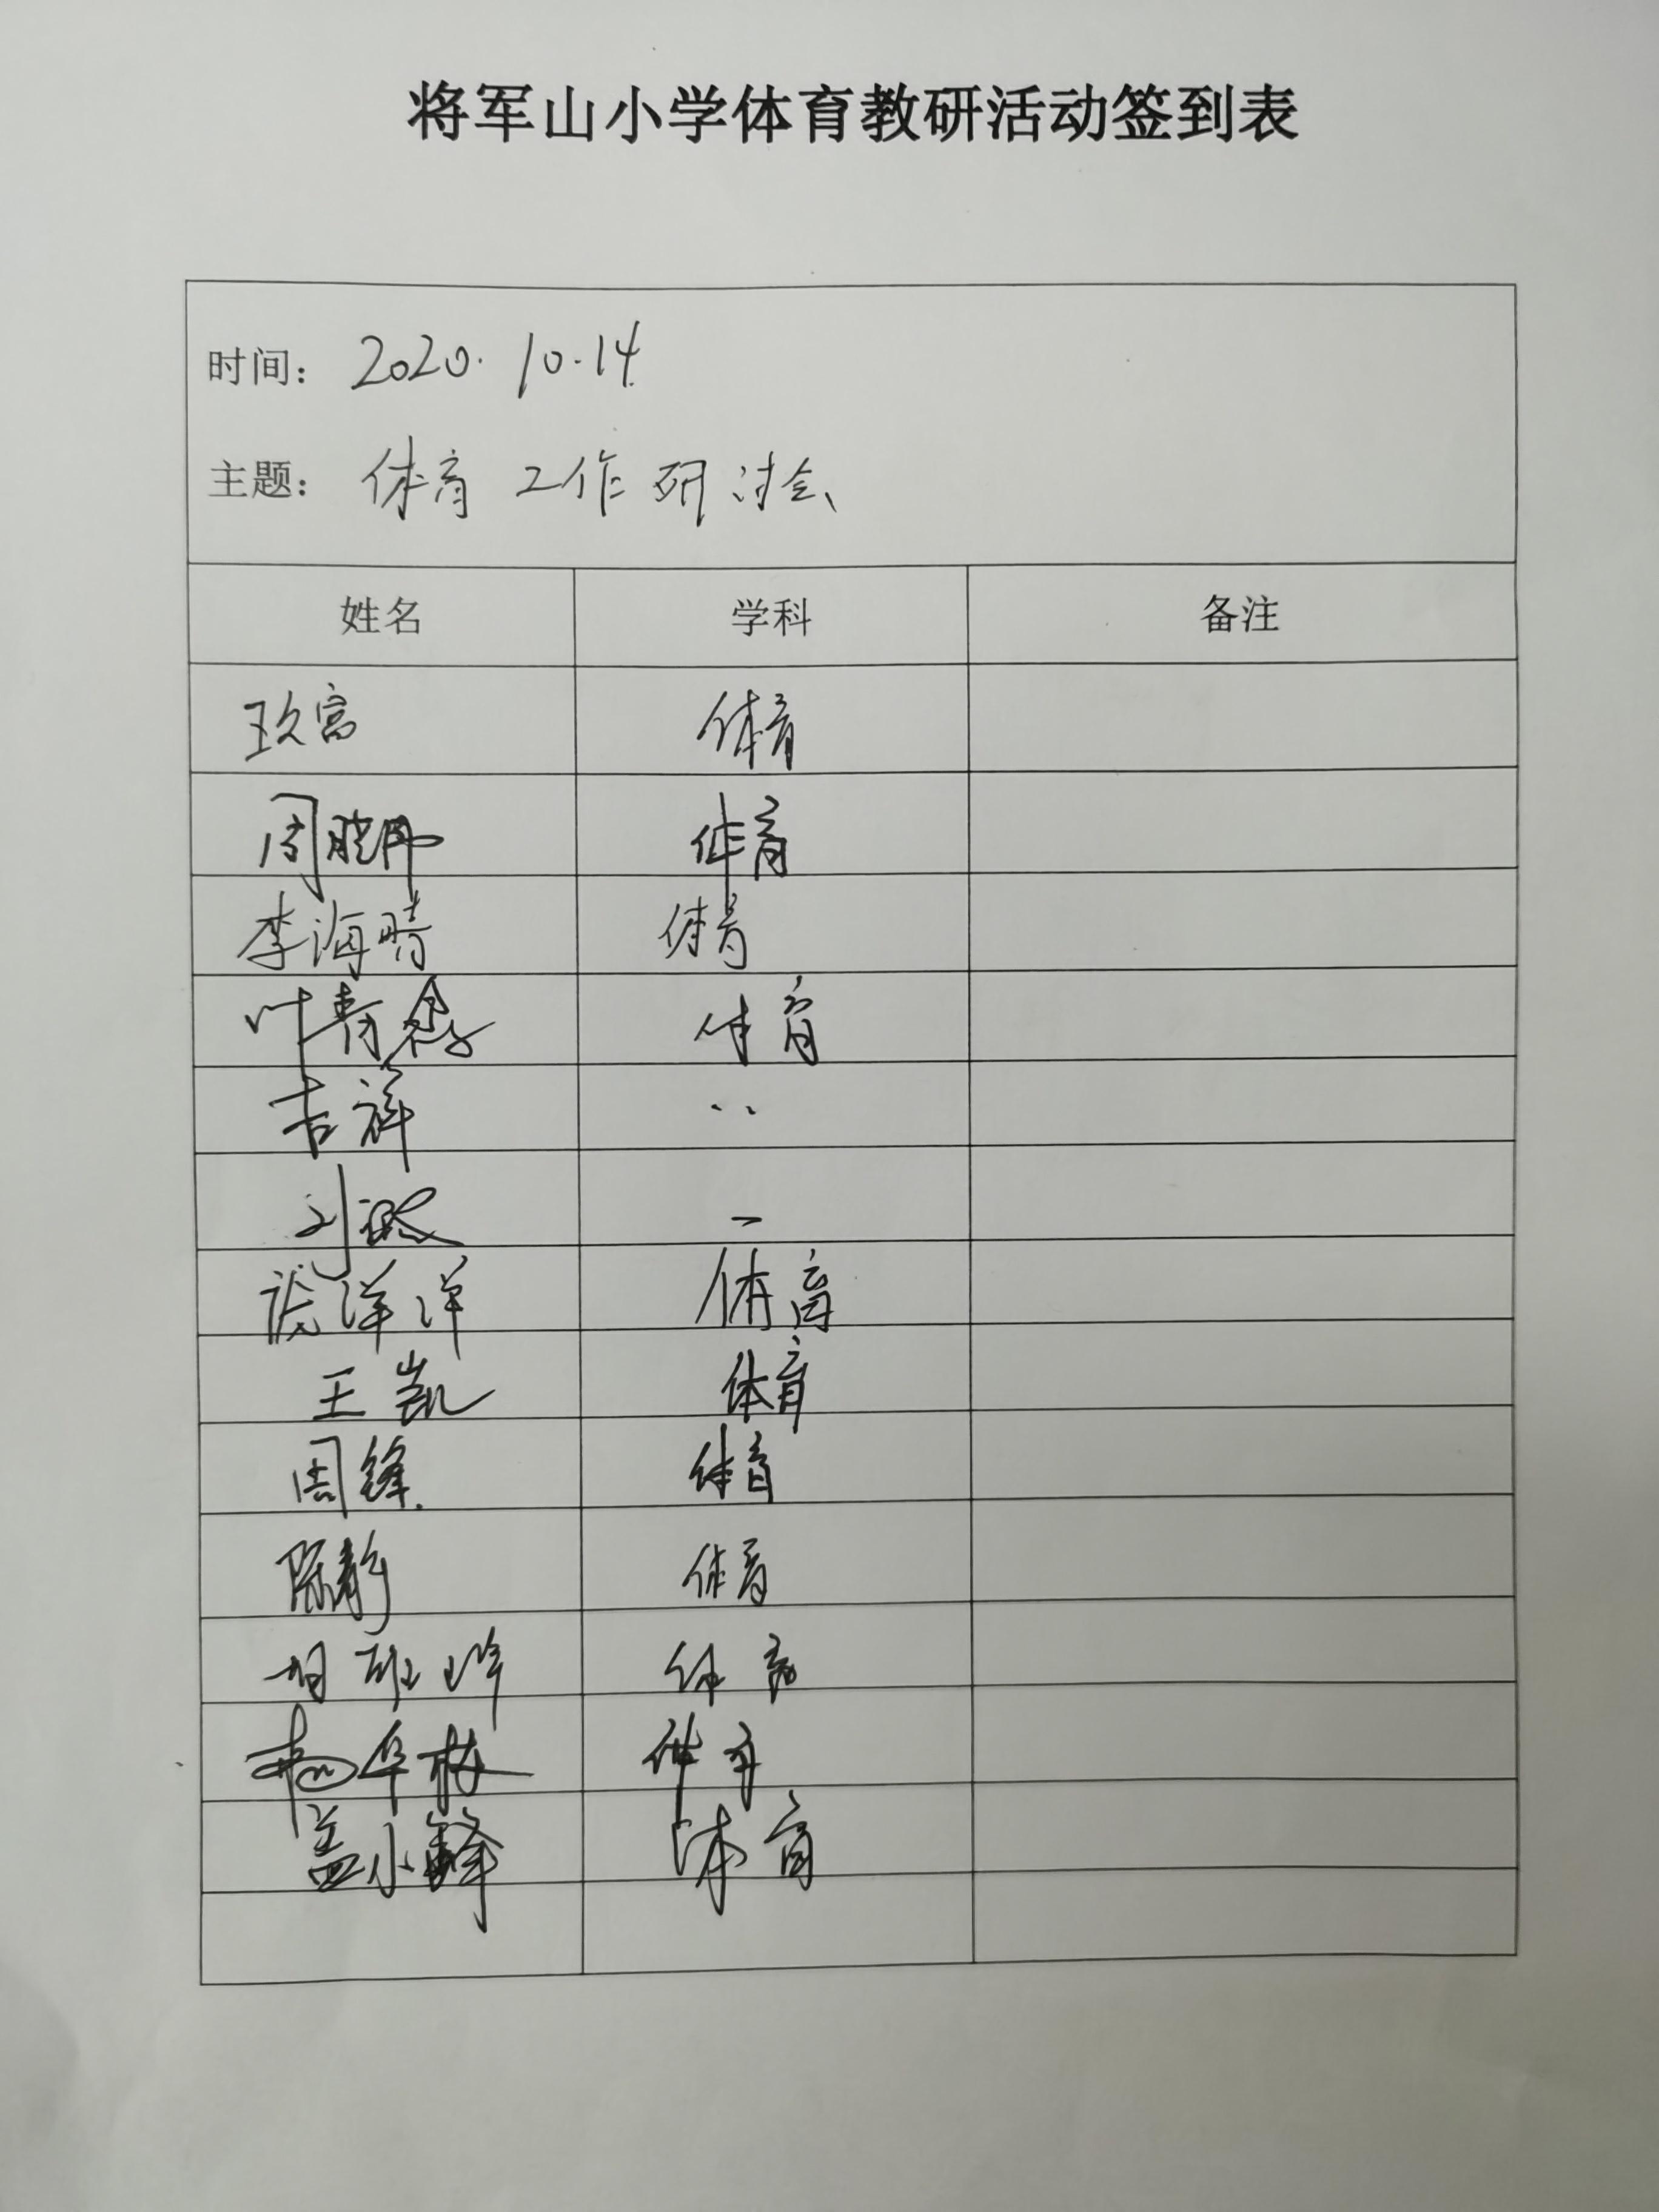 将军山小学体育教研活动签到表
时间： 2020.10.14
主题： 体育工作研讨会
姓名 学科 备注
王久富 体育
周 体育
李海晴 体育
叶青 体育
吉祥 、、
刘 一
洋洋 体育
王凯 体育
周锋. 体育
陈静 体育
体育
杨华梅 体育
盖小锋 体育